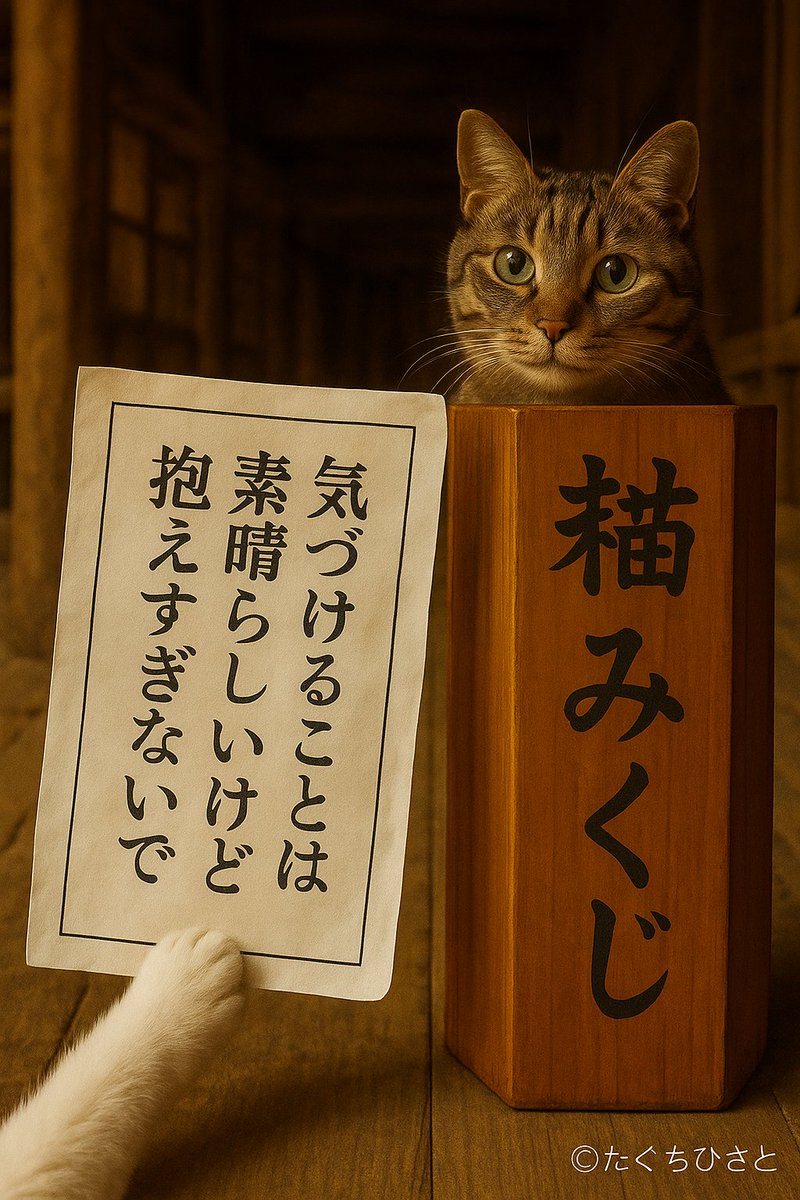 気づけることは
素晴らしいけど
抱えすぎないで
猫みくじ
©たぐちひさと